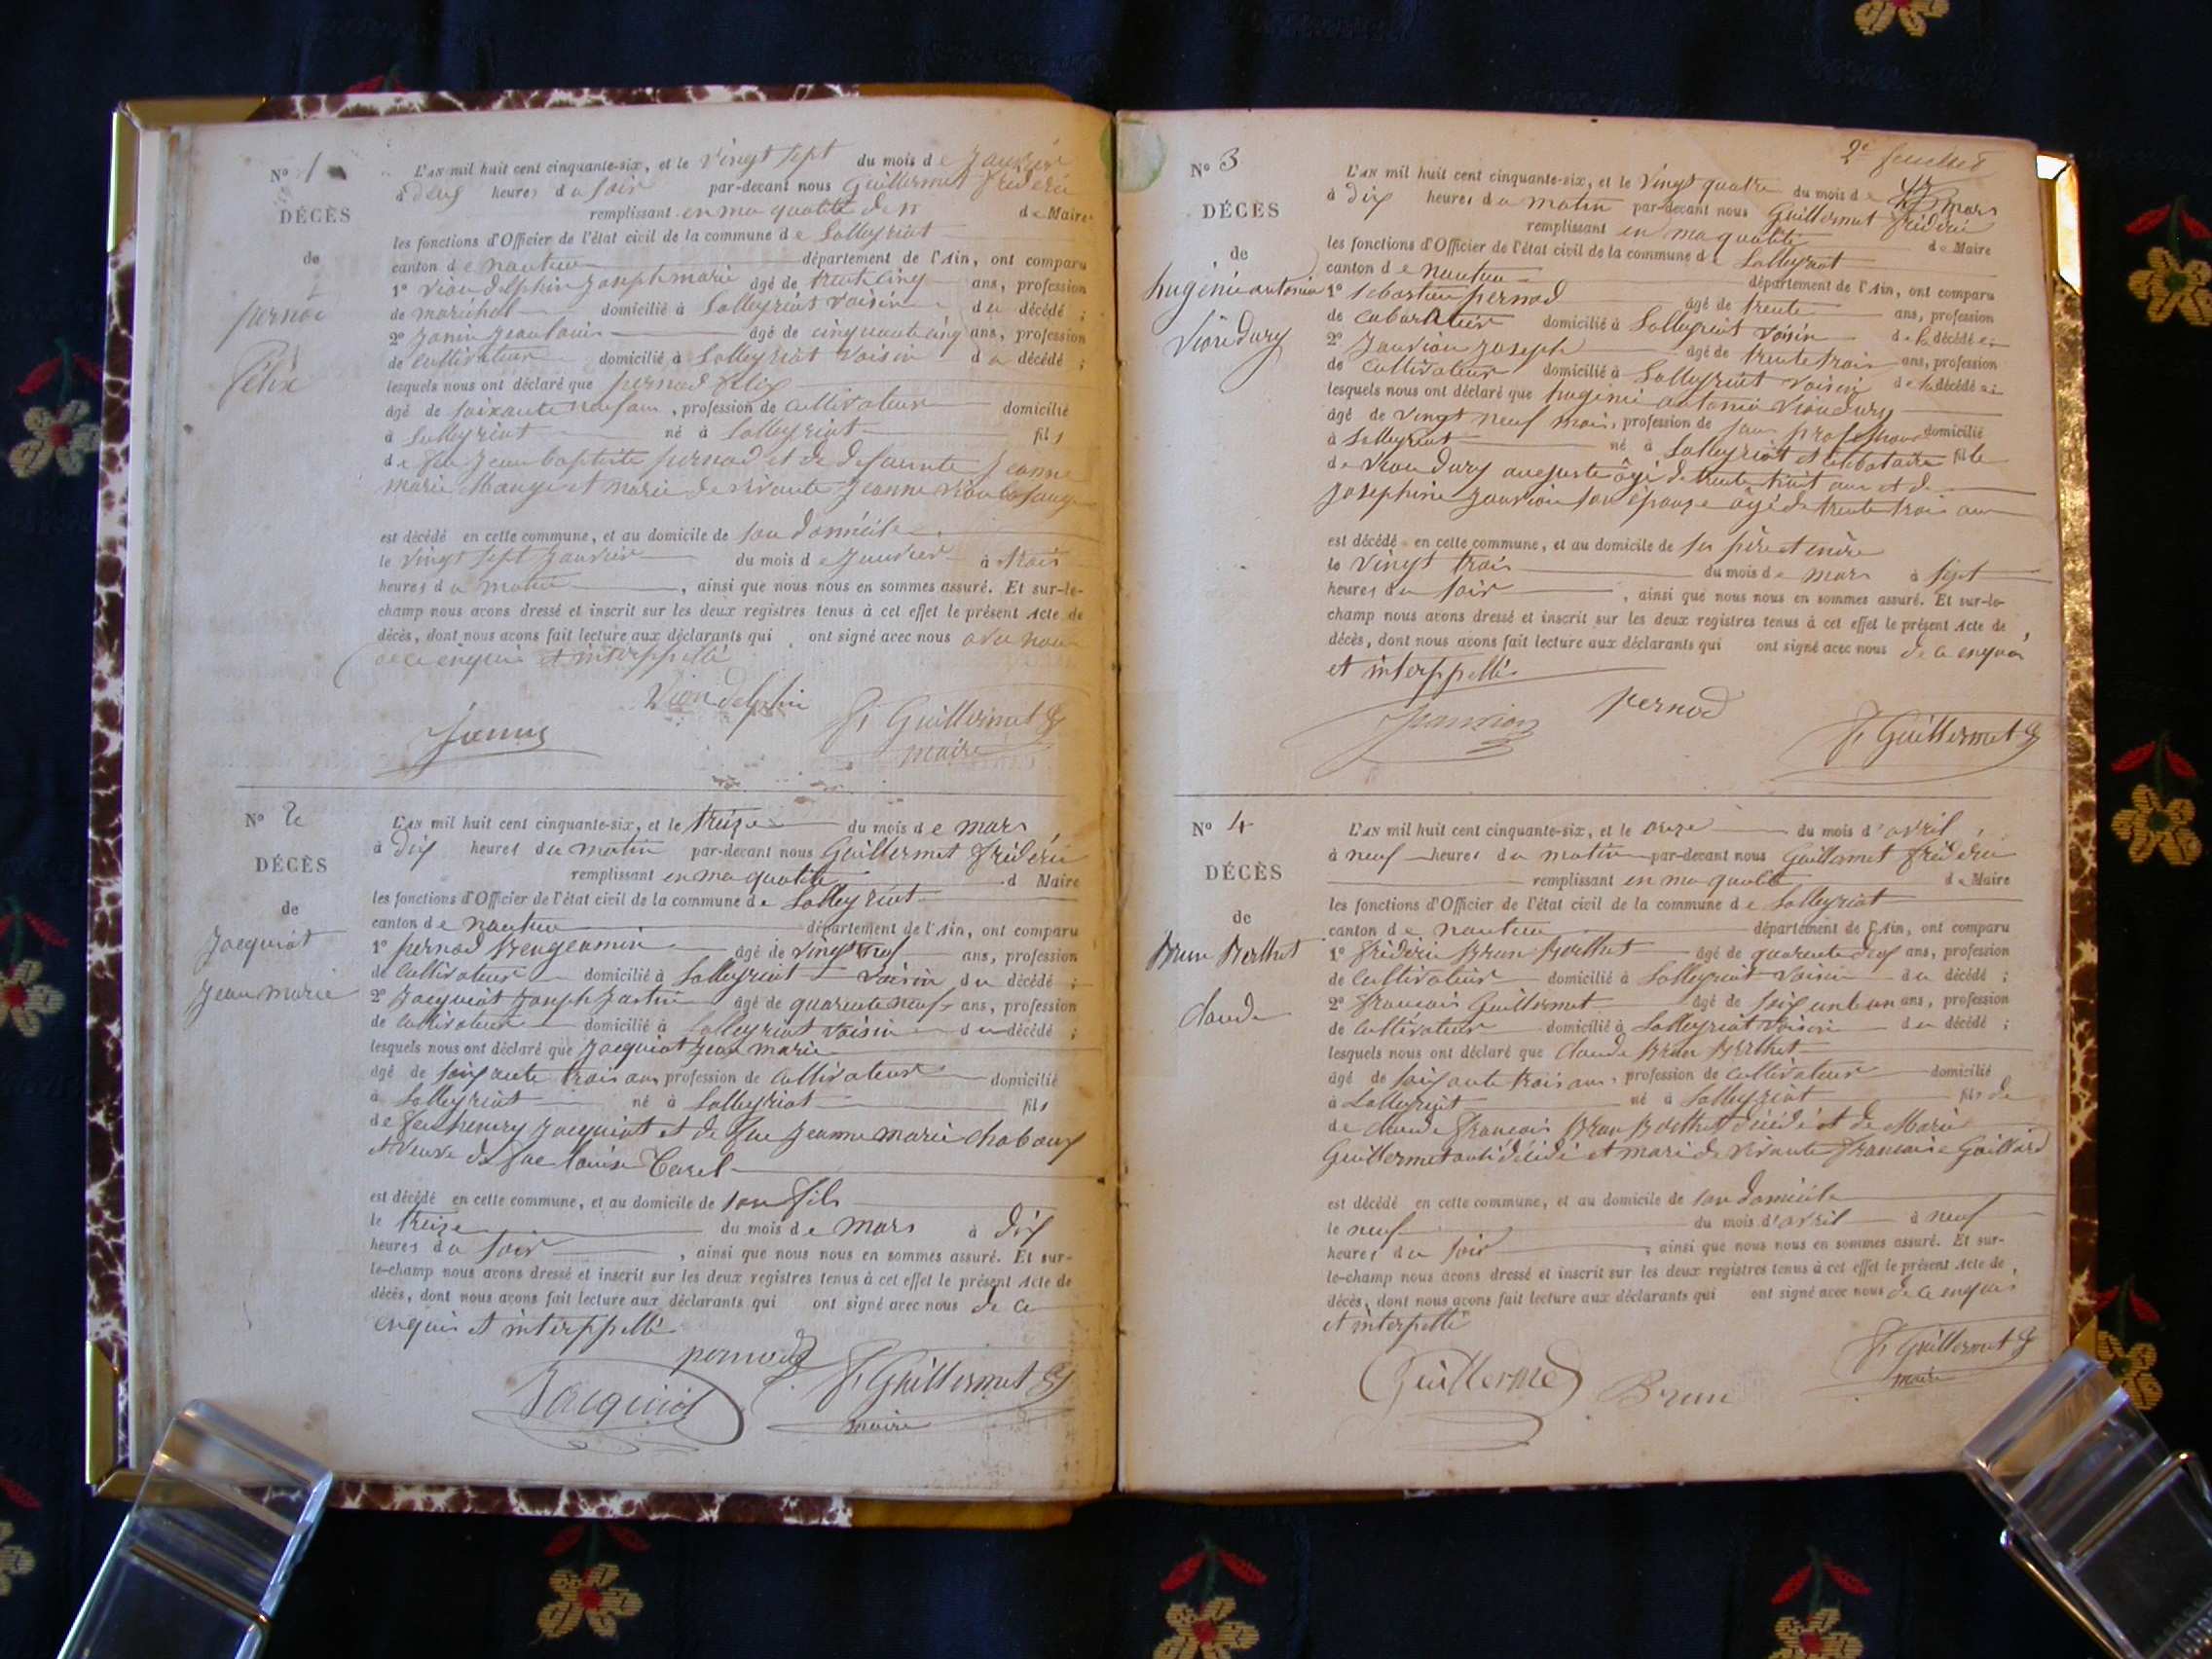 N° 1
DÉCÈS
de
pernod
Félix
L'AN mil huit cent cinquante-six, et le vingt sept du mois de Janvier
à deux heures du soir par-devant nous Guillermet frédéric
remplissant en ma qualité de Maire
les fonctions d'Officier de l'état civil de la commune de Lalleyriat
canton de nantua département de l'Ain, ont comparu
1° Vion delphin Joseph marie âgé de trente cinq ans, profession
de maréchal domicilié à Lalleyriat voisin du décédé ;
2° Janin Jean louis âgé de cinquante cinq ans, profession
de cultivateur domicilié à Lalleyriat voisin du décédé ;
lesquels nous ont déclaré que pernod felix
âgé de soixante neuf ans, profession de cultivateur domicilié
à Lalleyriat né à Lalleyriat fils
de feu Jean baptiste pernod et de defuinte Jeanne
marie et marie de vivante Jeanne
est décédé en cette commune, et au domicile de son domicile
le vingt sept Janvier du mois de Janvier à trois
heures du matin, ainsi que nous nous en sommes assuré. Et sur-le-
champ nous avons dressé et inscrit sur les deux registres tenus à cet effet le présent Acte de
décès, dont nous avons fait lecture aux déclarants qui ont signé avec nous
de ce enquis et interppellé
Vion delphin
F. Guillermet
maire
N° 2
DÉCÈS
de
Jacquiot
Jean marie
L'AN mil huit cent cinquante-six, et le treize du mois de mars
à dix heures du matin par-devant nous Guillermet frédéric
remplissant en ma qualité d Maire
les fonctions d'Officier de l'état civil de la commune de Lalleyriat
canton de nantua département de l'Ain, ont comparu
1° pernod Bengeamin âgé de vingt neuf ans, profession
de cultivateur domicilié à Lalleyriat voisin du décédé ;
2° Jacquiot Joseph Justin âgé de quarente neuf ans, profession
de cultivateur domicilié à Lalleyriat voisin du décédé ;
lesquels nous ont déclaré que Jacquiot Jean marie
âgé de soixante trois ans profession de cultivateur domicilié
à Lalleyriat né à Lalleyriat fils
de feu henry Jacquiot et de fue Jeanne marie chaboux
et veuve de fue louise Carel
est décédé en cette commune, et au domicile de son fils
le treize du mois de mars à dix
heures du soir, ainsi que nous nous en sommes assuré. Et sur-
le-champ nous avons dressé et inscrit sur les deux registres tenus à cet effet le présent Acte de
décès, dont nous avons fait lecture aux déclarants qui ont signé avec nous de ce
enquis et interppellé
pernod
Jacquiot
F. Guillermet
maire
2e feuillet
N° 3
DÉCÈS
de
hugénie antonia
Vion dury
L'AN mil huit cent cinquante-six, et le vingt quatre du mois de mars
à dix heures du matin par-devant nous Guillermet frédéric
remplissant en ma qualité de Maire
les fonctions d'Officier de l'état civil de la commune de Lalleyriat
canton de nantua département de l'Ain, ont comparu
1° sebastien pernod âgé de trente ans, profession
de cabaretier domicilié à Lalleyriat voisin de la décédée ;
2° Janvion Joseph âgé de trente trois ans, profession
de cultivateur domicilié à Lalleyriat voisin de la décédée ;
lesquels nous ont déclaré que hugénie antonia Viondury
âgé de vingt neuf mois, profession de sans profession domicilié
à Lalleyriat né à Lalleyriat et célibataire fille
de Vion dury auguste âgé de trente huit ans et de
Josephine Janvion son épouze âgé de trente trois ans
est décédé en cette commune, et au domicile de ses père et mère
le vingt trois du mois de mars à sept
heures du soir, ainsi que nous nous en sommes assuré. Et sur-le-
champ nous avons dressé et inscrit sur les deux registres tenus à cet effet le présent Acte de
décès, dont nous avons fait lecture aux déclarants qui ont signé avec nous de ce enquis
et interppellé
Janvion
pernod
F. Guillermet
N° 4
DÉCÈS
de
Brun Berthet
claude
L'AN mil huit cent cinquante-six, et le onze du mois d'avril
à neuf heures du matin par-devant nous Guillermet frédéric
remplissant en ma qualité de Maire
les fonctions d'Officier de l'état civil de la commune de Lalleyriat
canton de nantua département de l'Ain, ont comparu
1° frédéric Brun Berthet âgé de quarente deux ans, profession
de cultivateur domicilié à Lalleyriat voisin du décédé ;
2° francois Guillermet âgé de ans, profession
de cultivateur domicilié à Lalleyriat voisin du décédé ;
lesquels nous ont déclaré que claude Brun Berthet
âgé de soixante trois ans, profession de cultivateur domicilié
à Lalleyriat né à Lalleyriat fils de
de claude francois Brun Berthet décédé et de Marie
Guillermet décédé et mari de vivante francoise Gaillard
est décédé en cette commune, et au domicile de son domicile
le neuf du mois d'avril à neuf
heures du soir, ainsi que nous nous en sommes assuré. Et sur-
le-champ nous avons dressé et inscrit sur les deux registres tenus à cet effet le présent Acte de
décès, dont nous avons fait lecture aux déclarants qui ont signé avec nous de ce enquis
et interpellé
Guillermet
Brun
F. Guillermet
maire